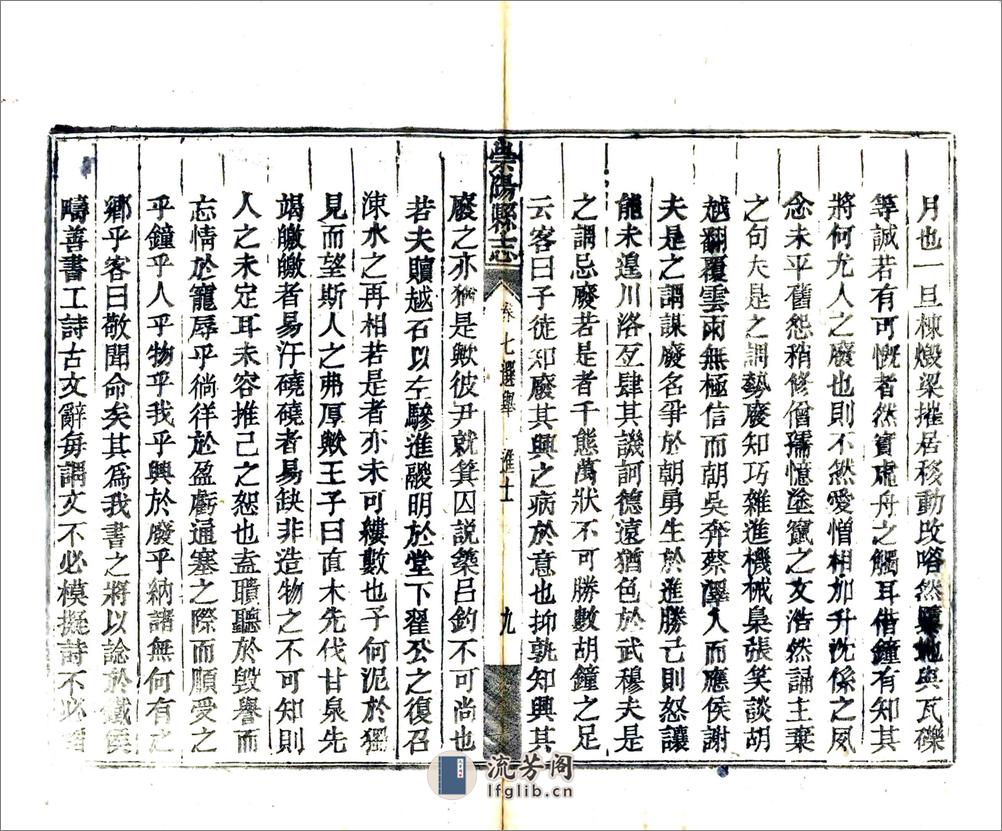 月也一旦棟燬梁摧居移動改嗒然與瓦礫
等誠若有可慨者然實虛舟之觸耳借鐘有知其
將何尤人之廢也則不然愛憎相加升沈係之夙
念未平舊怨稍修僧孺憶塗竄之文浩然誦主棄
之句夫是之謂勢廢知巧雜進機械梟張笑談胡
越翻覆雲雨無極信而朝吳奔蔡澤入而應侯謝
夫是之謂謀廢名爭於朝勇生於進勝己則怒讓
能未遑川洛互肆其譏訶德遠猶色於武穆夫是
之謂忌廢若是者千態萬狀不可勝數胡鐘之足
云客曰子徒知廢其興之病於意也抑孰知興其
崇陽縣志
卷七選舉 進士 九
廢之亦猶是歟彼尹就箕囚説築呂釣不可尚也
若夫贖越石以左驂進鬷明於堂下翟公之復召
涑水之再相若是者亦未可縷數也子何泥於獨
見而望斯人之弗厚歟王子曰直木先伐甘泉先
竭皦皦者易汙磽磽者易缺非造物之不可知則
人之未定耳未容推己之恕也盍聵聽於毀譽而
忘情於寵辱乎徜徉於盈虧通塞之際而順受之
乎鐘乎人乎物乎我乎興於廢乎納諸無何有之
鄉乎客曰敬聞命矣其爲我書之將以諗於
疇善書工詩古文辭每謂文不必模擬詩不必
流芳阁
lfglib.cn